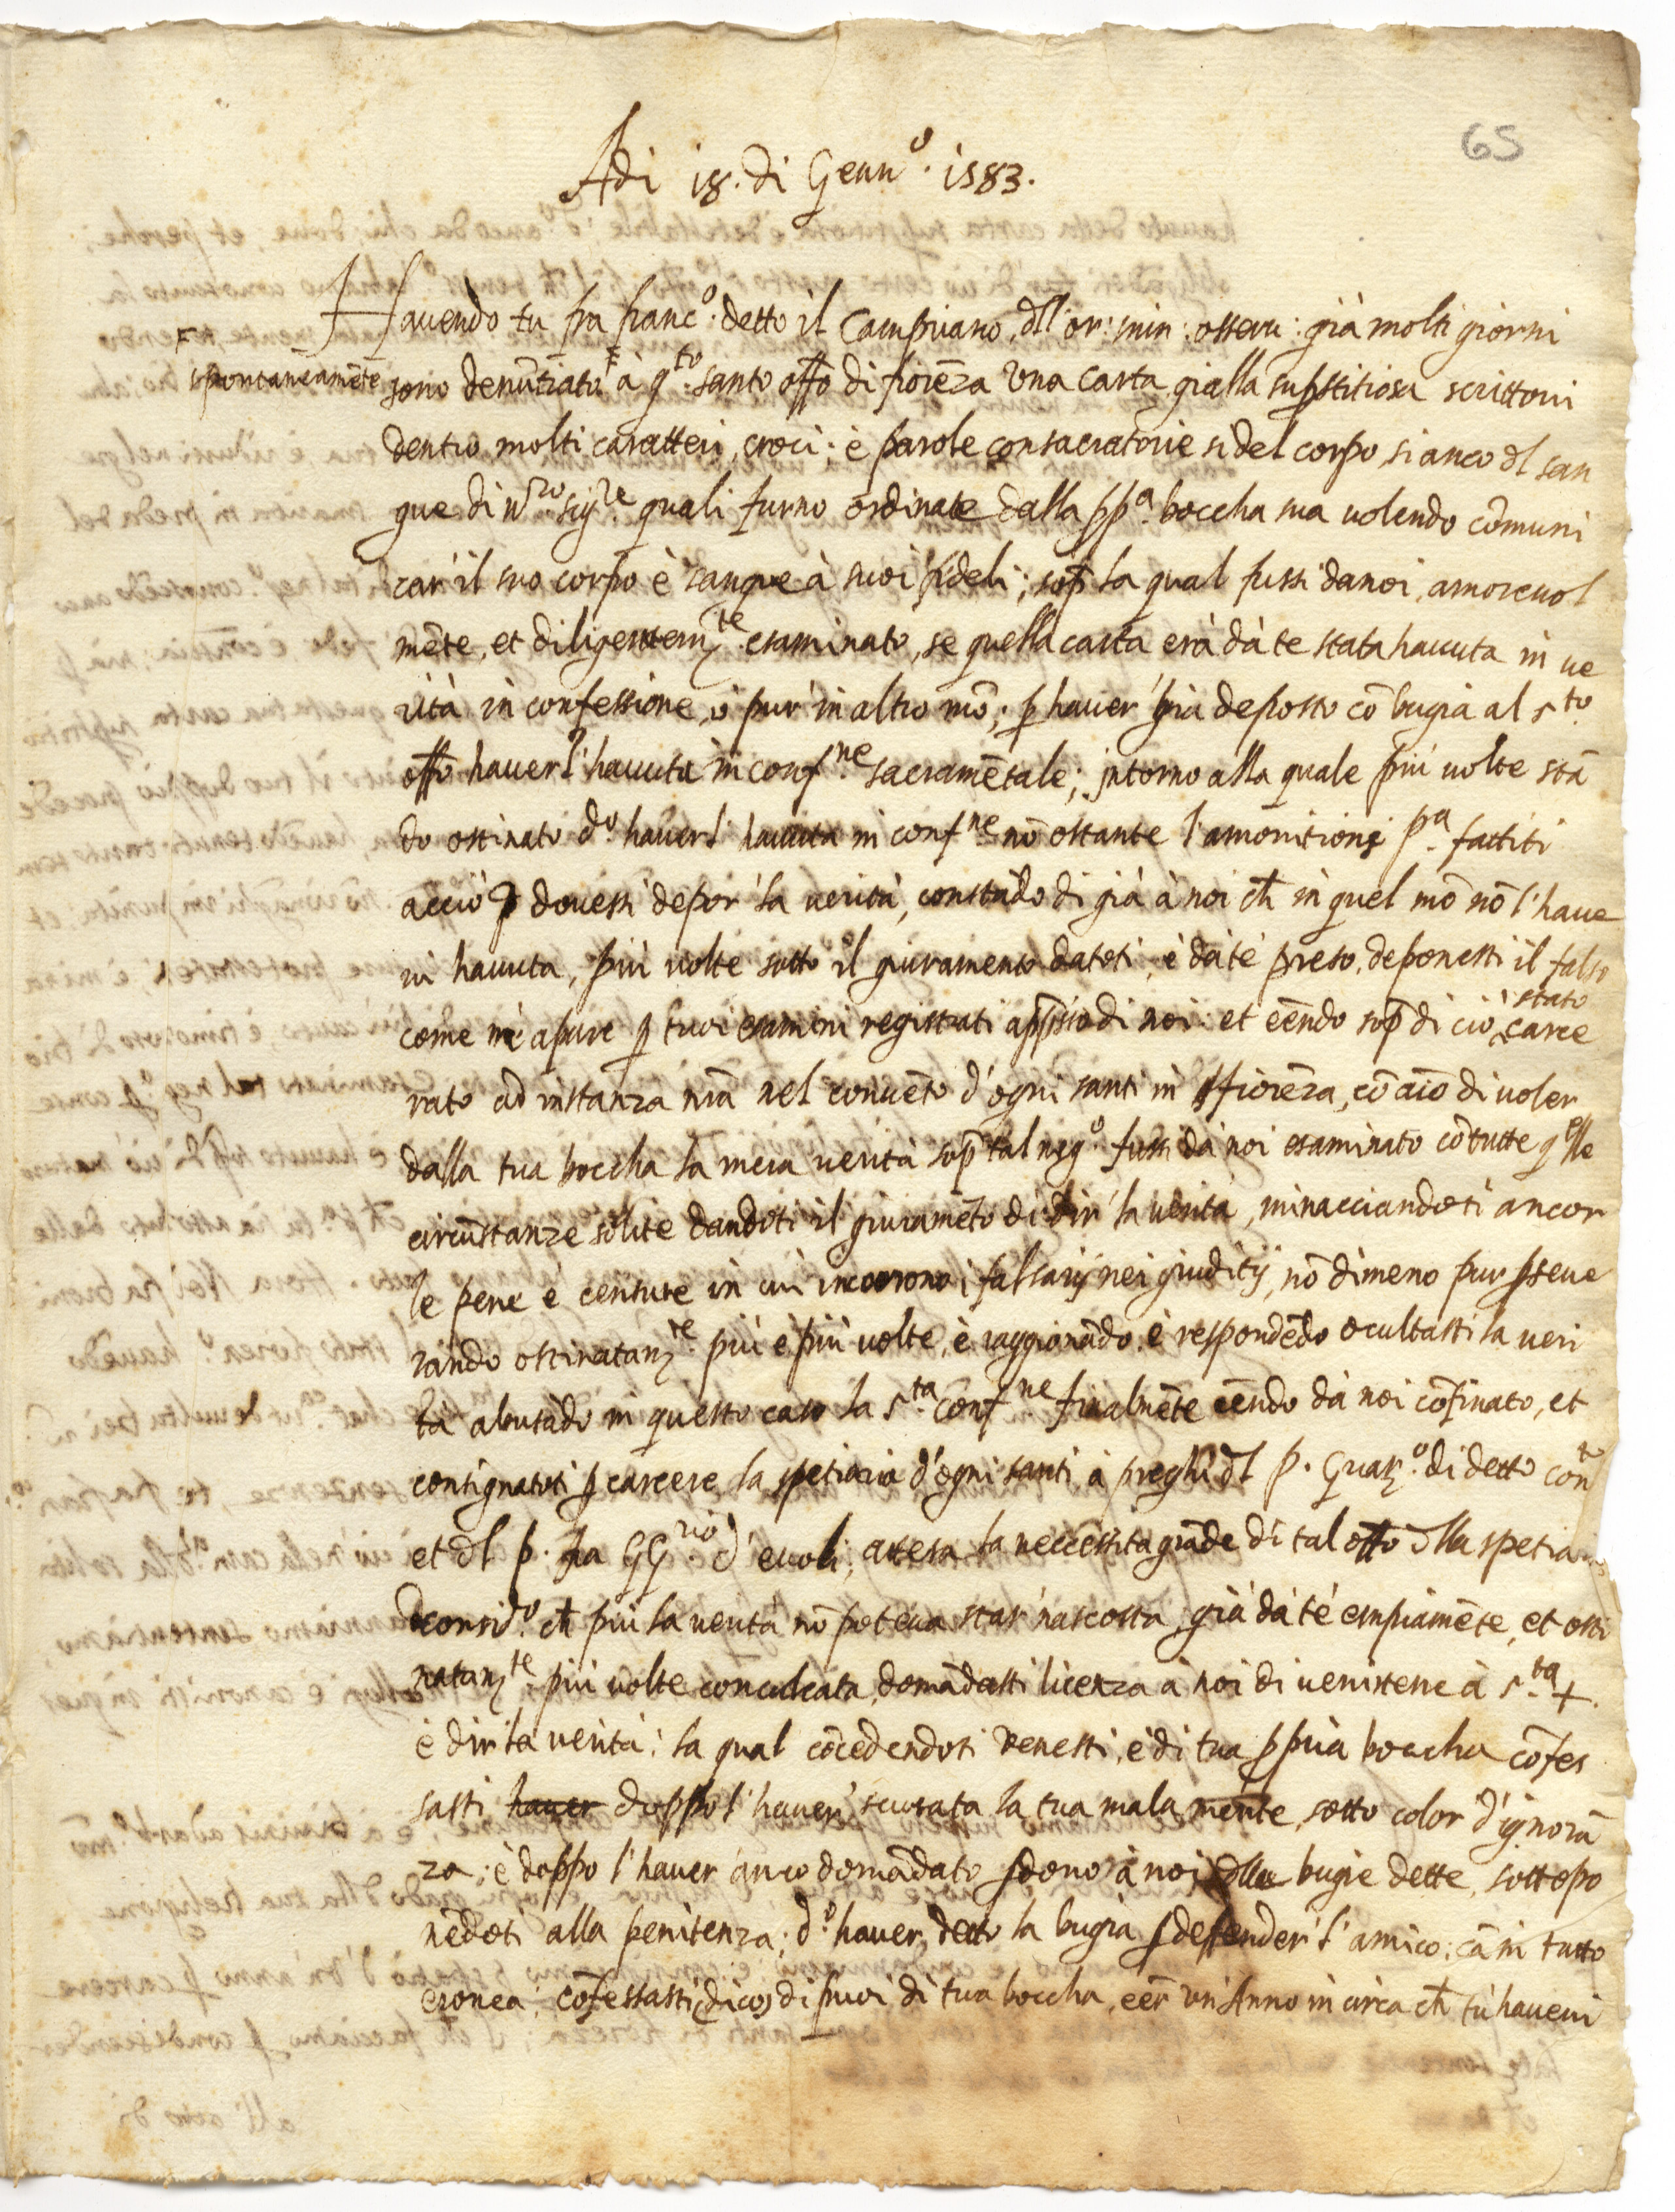 65
Adi 18. di Genn.o 1583.
Havendo tu fra franc.o detto il Campriano, dll' or: min: osseru: già molti giorni
spontaneamēte
sono denūtiato à q.to santo offo di fiorēza una carta gialla supstitiosa scrittoui
dentro molti caratteri, croci; è parole consacratorie si del corpo, si anco dl san
gue di Nro sig.re quali furno ordinate dalla pp.a boccha sua uolendo comuni
car' il suo corpo è sangue à suoi fideli; sop̄ la qual fussi da noi, amoreuol
mēte, et diligentem.te esaminato, se quella carta erà dà te stata hauuta in ve
rità in confessione, ò pur' in altro mō; p hauer' già deposto cō bugia al s.to
offo hauerl' hauuta in conf.ne sacramētale; intorno alla quale più uolte stā
do ostinato d.o hauerl' hauuta in conf.ne nō ostante l'amonitioni p.a fattiti
acciò douessi depor' la uerità, constādo di già à noi ch̄ in quel mō nō l'haue
ui hauuta, più uolte sotto il giuramento datoti, è dà te preso, deponesti il falso
come nè apare p tuoi esamini registrati appsso di noi: et eēndo sop̄ di ciò stato carce
rato ad instanza nrā nel conuēto d'ogni santi in fiorēza, cō aīo di uoler
dalla tua boccha la mera uerità sop̄ tal neg.o fussi dà noi esaminato cō tutte q.elle
circūstanze solite dandoti il giuramēto di dir' la uerità, minacciandoti ancor
le pene è censure in cui incorrono i falsarij nei giuditij, nō dimeno pur pseue
rando ostinatam.te più e più uolte, è raggionādo, è respondēdo ocultasti la ueri
tà abusādo in questo caso la s.ta conf.ne finalmēte eēndo dà noi cōfinato, et
consignatoti p carcere la spetiaria d'ogni santi à preghi dl p. Guar.o di detto con.to
et dl p. fra GG.rio d'euoli, attesa la neccessità grāde di tal offo dlla spetiaria
consid.o ch̄ più la uerità nō poteua star' nascosta, già dà te empiamēte, et osti
natam.te più uolte conculcata, domādasti licenza à noi di uenirtene à s.ta +
è dir la uerità: la qual cōcedendoti venesti, è di tua ppria boccha cōfes
sasti hauer doppo l'hauer' scusata la tua mala mente, sotto color d'ignorā
za; è doppo l'hauer' anco domādato pdono à noi dlle bugie dette, sottopo
nēdoti alla penitenza; d.o hauer' detto la bugia p deffender' l'amico; cā in tutto
eronea; cōfessasti (dico) di puoi di tua boccha, eēr un' Anno in circa ch̄ tù haueui